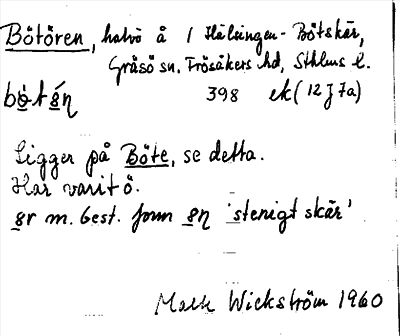 Bötören, halvö å / Hälsingen - Bötskär,
Gräsö sn, Frösåkers hd, Sthlms l.
398 ek (12 J 7a)
Ligger på Böte, se detta.
Har varit ö.
m. best. form 'stenigt skär'
Wickström 1960